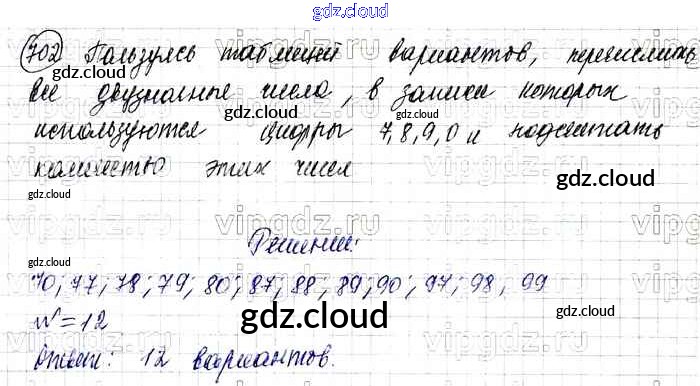 gdz.cloud
702 Пользуясь таблицей вариантов, перечислить
gdz.cloud
все двузначные числа, в записи которых
gdz.cloud
используются цифры 7,8,9,0 и подсчитать
количество этих чисел
gdz.cloud
gdz.cloud
vipgdz.ru
Решение:
70; 77; 78; 79; 80; 87; 88; 89; 90; 97; 98; 99
gdz.cloud
N=12
gdz.cloud
Ответ: 12 вариантов.
gdz.cloud